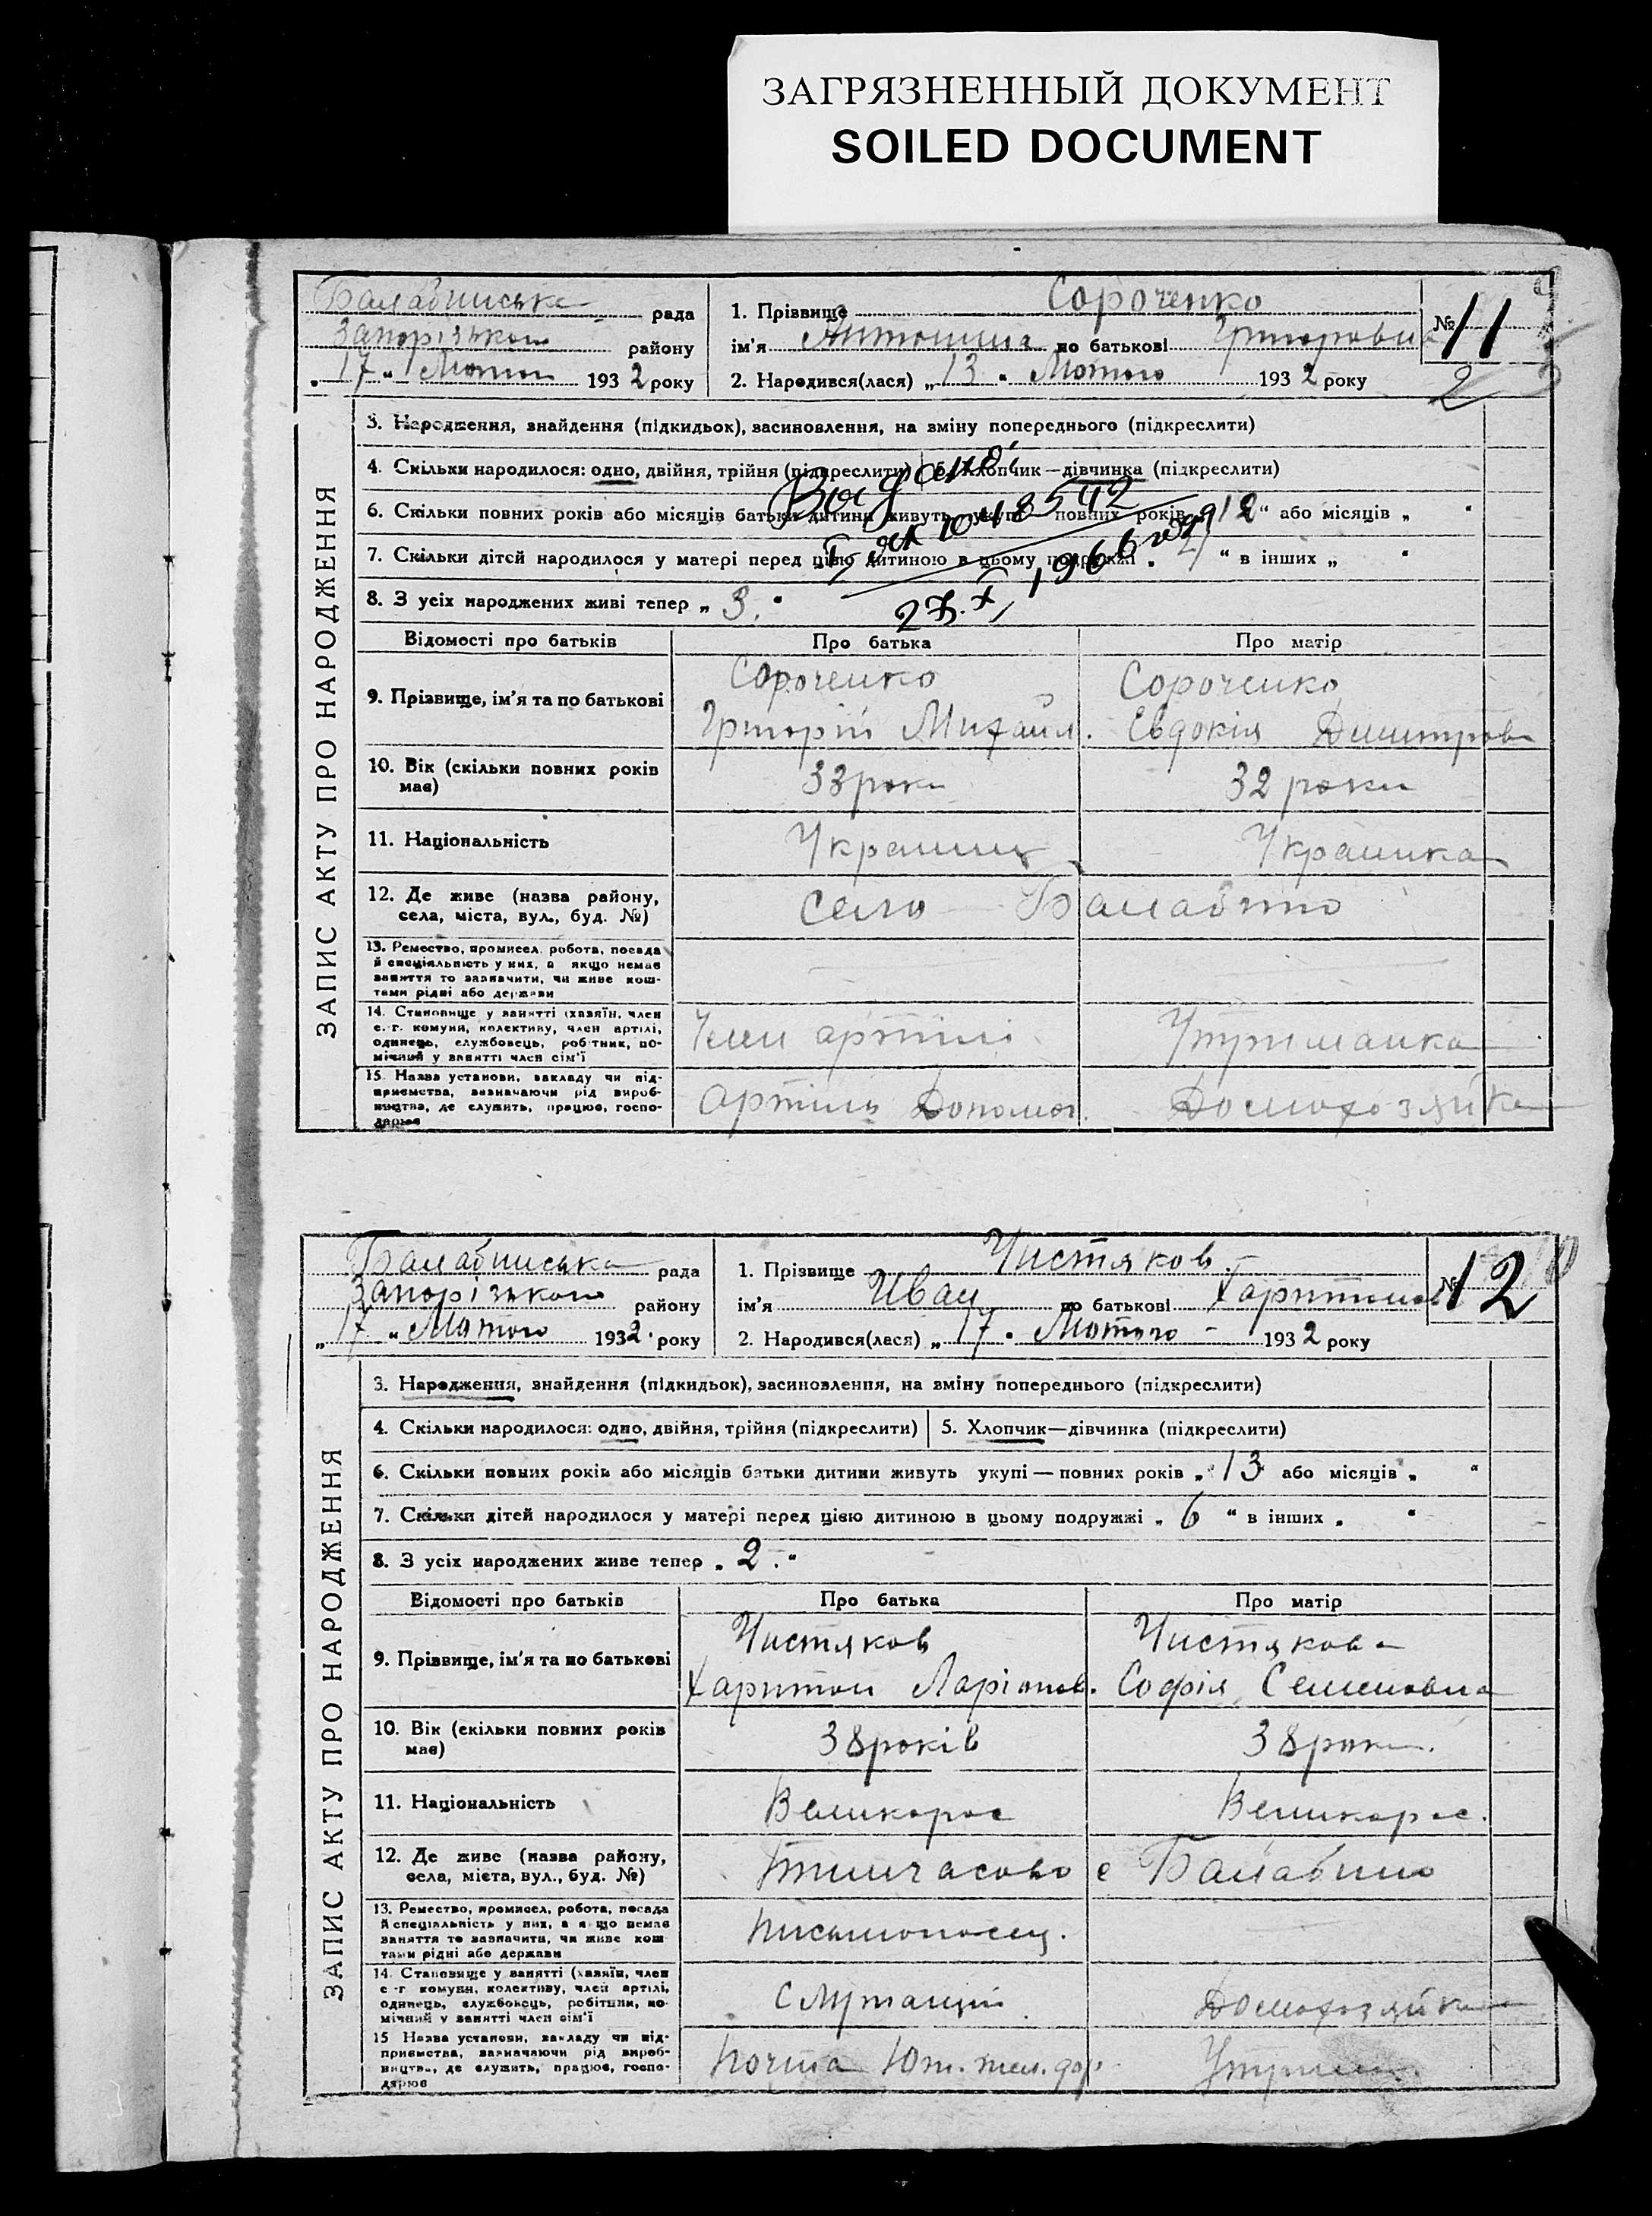 ЗАГРЯЗНЕННЫЙ ДОКУМЕНТ
SOILED DOCUMENT
Балабинська рада
Запорізького району
„ 17 “ Лютого 1932 року
1. Прізвище Сороченко
ім'я Антонина по батькові Григоровна
2. Народився(лася) „ 13 “ Лютого 1932 року
№ 11
2
ЗАПИС АКТУ ПРО НАРОДЖЕННЯ
3. Народження, знайдення (підкидьок), засиновлення, на зміну попереднього (підкреслити)
4. Скільки народилося: одно, двійня, трійня (підкреслити) 5. Хлопчик—дівчинка (підкреслити)
6. Скільки повних років або місяців батьки дитини живуть укупі — повних років „ 12 “ або місяців „ “
7. Скільки дітей народилося у матері перед цією дитиною в цьому подружжі „ “ в інших „ “
8. З усіх народжених живі тепер „ 3. “
27.X. 1966
Відомості про батьків Про батька Про матір
9. Прізвище, ім'я та по батькові
Сороченко Григорій Михайл.
Сороченко Евдокія Дмитров
10. Вік (скільки повних років має) 33 роки 32 роки
11. Національність Українец Українка
12. Де живе (назва району, села, міста, вул., буд. №) село Балабино
13. Ремество, промисел, робота, посада й спеціяльність у них, а якщо немає заняття то зазначити, чи живе коштами рідні або держави
14. Становище у занятті (хазяїн, член с.-г. комуни, колективу, член артілі, одинець, службовець, робітник, помічний у занятті член сім'ї Член артілі Утриманка
15. Назва установи, закладу чи підприємства, зазначаючи рід виробництва, де служить, працює, господарює Артіль Допомог. Домохозяйка
Балабинська рада
Запорізького району
„ 17 “ Лютого 1932 року
1. Прізвище Чистяков
ім'я Иван по батькові Харитонов
2. Народився(лася) „ 17 “ Лютого 1932 року
№ 12
ЗАПИС АКТУ ПРО НАРОДЖЕННЯ
3. Народження, знайдення (підкидьок), засиновлення, на зміну попереднього (підкреслити)
4. Скільки народилося: одно, двійня, трійня (підкреслити) 5. Хлопчик—дівчинка (підкреслити)
6. Скільки повних років або місяців батьки дитини живуть укупі — повних років „ 13 або місяців „ “
7. Скільки дітей народилося у матері перед цією дитиною в цьому подружжі „ 6 “ в інших „ “
8. З усіх народжених живе тепер „ 2. “
Відомості про батьків Про батька Про матір
9. Прізвище, ім'я та по батькові
Чистяков Харитон Ларіонов.
Чистякова Софія Семеновна
10. Вік (скільки повних років має) 38 років 38 рок.
11. Національність Великорос Великорос.
12. Де живе (назва району, села, міста, вул., буд. №) Тимчасово с Балабино
13. Ремество, промисел, робота, посада й спеціяльність у них, а якщо немає заняття то зазначити, чи живе коштами рідні або держави Письмоносец.
14. Становище у занятті (хазяїн, член с.-г. комуни, колективу, член артілі, одинець, службовець, робітник, помічний у занятті член сім'ї Служащий Домохозяйка
15 Назва установи, закладу чи підприємства, зазначаючи рід виробництва, де служить, працює, господарює Почта Юж. жел. дор. Утриман.